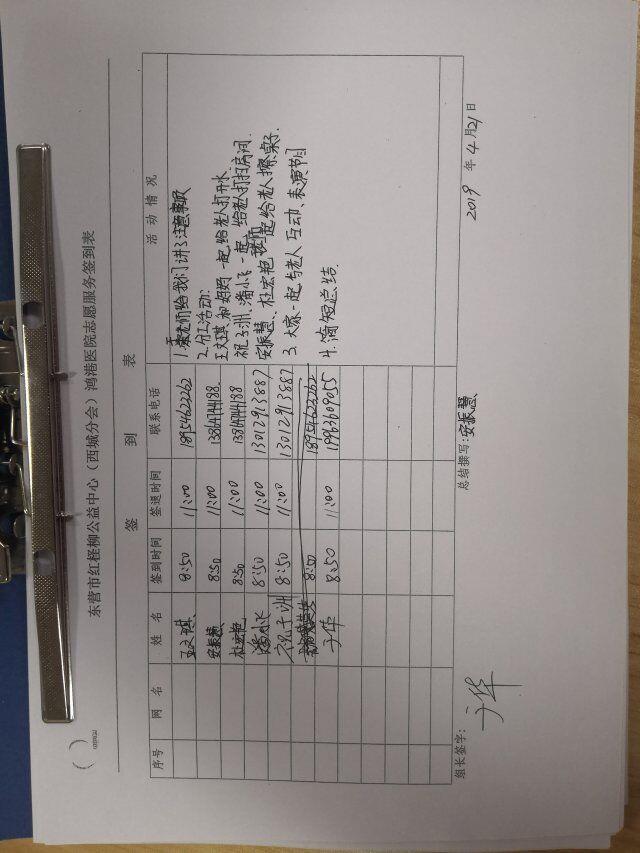 东营市红柽柳公益中心（西城分会）鸿港医院志愿服务签到表
签 到 表
序号 网 名 姓 名 签到时间 签退时间 联系电话 活 动 情 况
王文琪 8:50 11:00 18954622262
安振慧 8:50 11:00 13864744188
杜宏艳 8:50 11:00 13864744188
潘小飞 8:50 11:00 13012913887
祝子洲 8:50 11:00 13012913887
8:50 18954622262
于华 8:50 11:00 19963609055
1.老师给我们讲了注意事项
2.分工活动:
王文琪和妈妈一起给老人打开水
祝子洲、潘小飞一起给老人打扫房间.
安振慧、杜宏艳一起给老人擦桌子.
3.大家一起与老人互动、表演节目
4.简短总结.
组长签字: 于华
总结撰写: 安振慧
2019 年 4 月 21 日